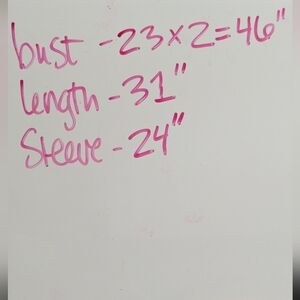 bust - 23x2=46"
Length - 31"
Sleeve - 24"